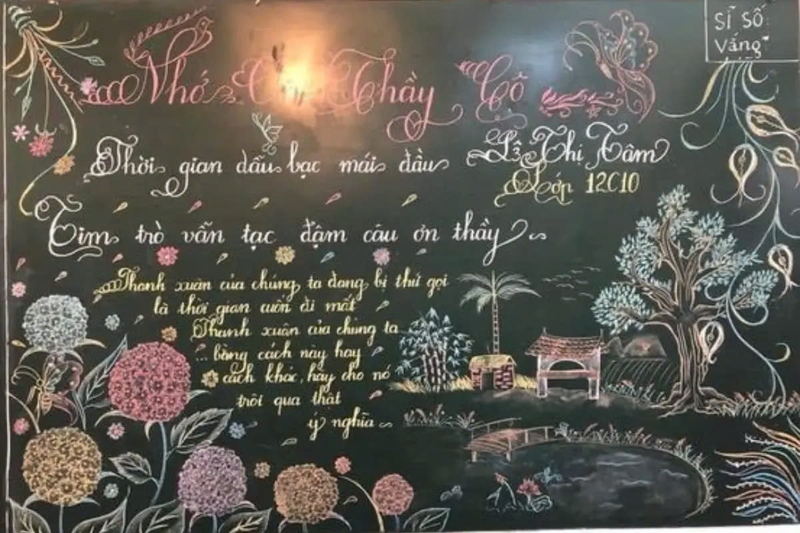 Nhớ Ơn Thầy Cô
SĨ SỐ:
Vắng:
Thời gian dẫu bạc mái đầu
Lê Thị Tâm
Lớp 12C10
Tim trò vẫn tạc đậm câu ơn thầy
Thanh xuân của chúng ta đang bị thứ gọi
là thời gian cuốn đi mất
Thanh xuân của chúng ta
... bằng cách này hay
cách khác, hãy cho nó
trôi qua thật
ý nghĩa